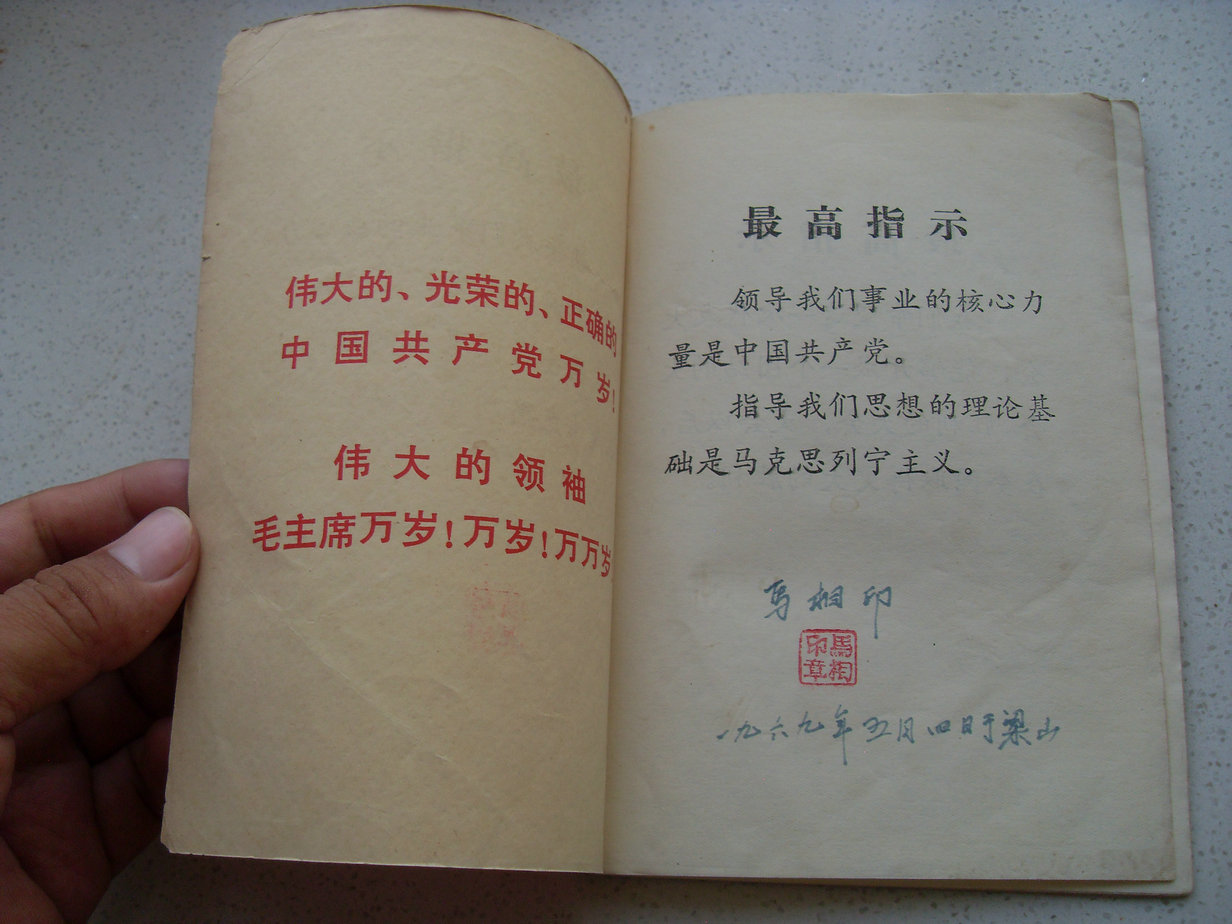 伟大的、光荣的、正确的
中国共产党万岁!
伟大的领袖
毛主席万岁!万岁!万万岁
最高指示
领导我们事业的核心力
量是中国共产党。
指导我们思想的理论基
础是马克思列宁主义。
马相印
馬相
印章
一九六九年五月四日于梁山